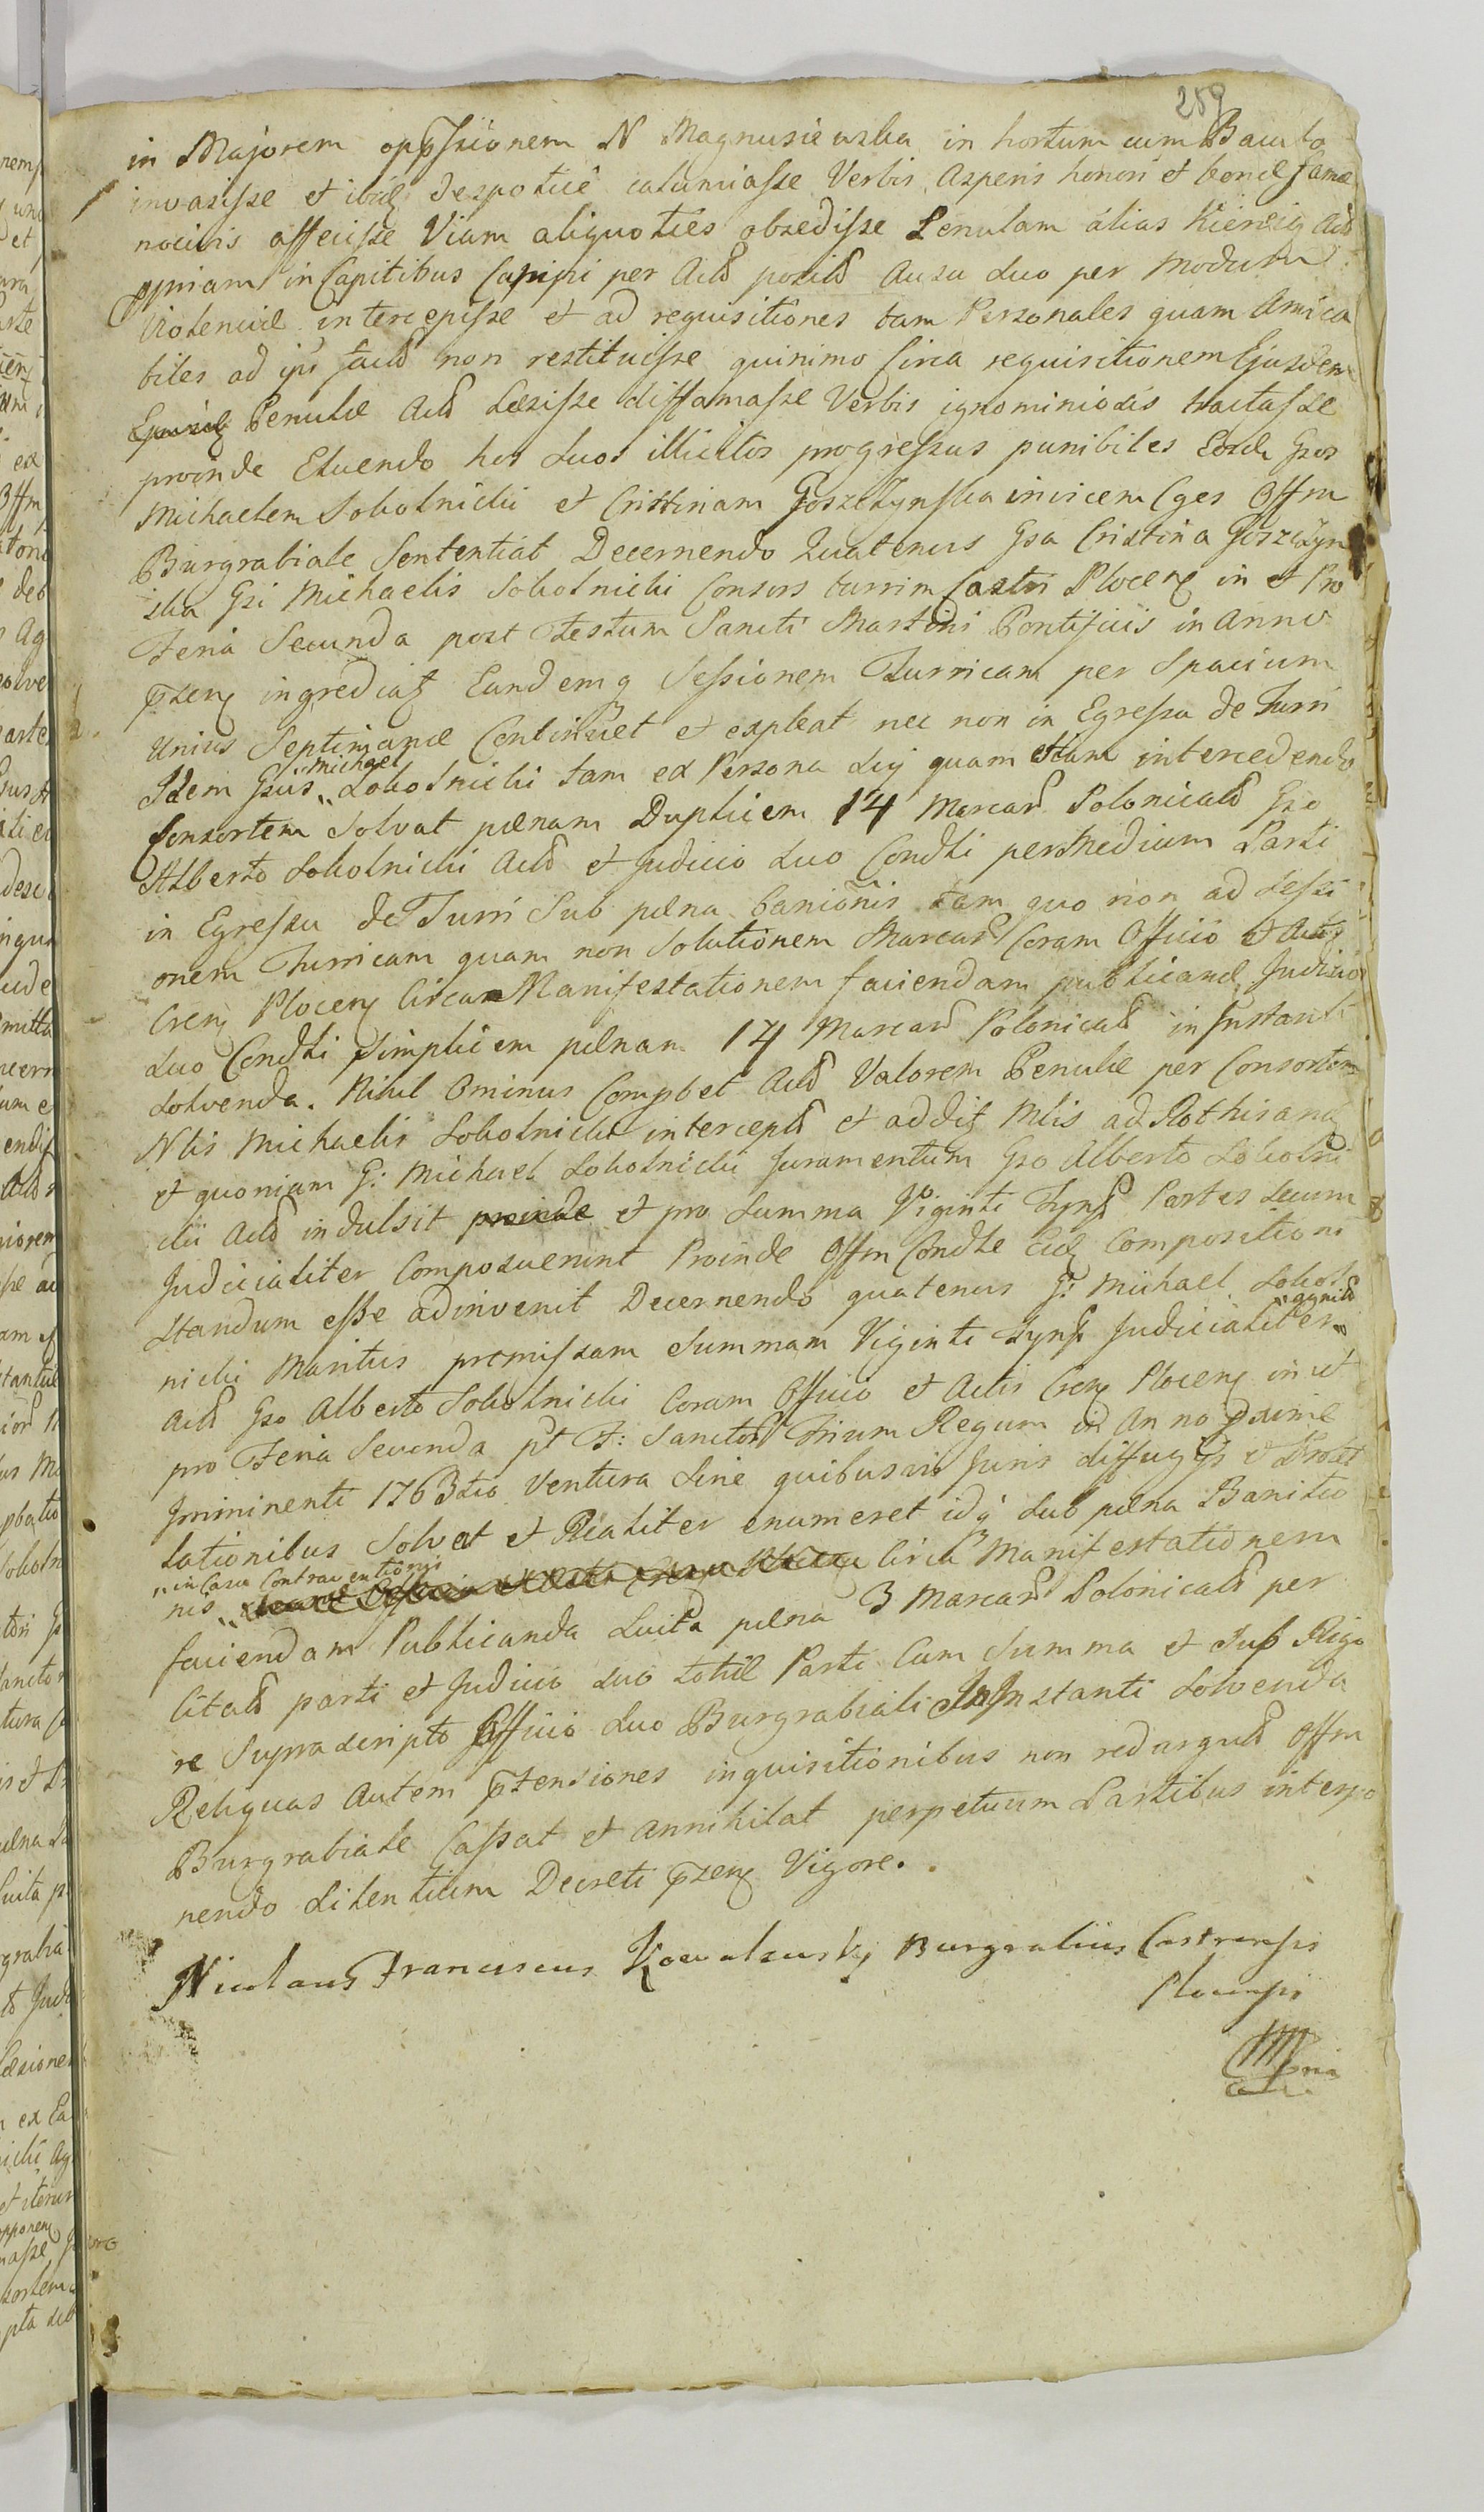 259
in Majorem oppssionem N Magnusiewska in hortum cum Baculo
invasisse et ibid Despotice calumiasse Verbis Asperis honori et bonæ famæ
nocivis affecisse Viam aliquoties obsedisse Penulam alias Kiereię
in Capitibus per Ausu suo per Modum
Violentiæ intercepisse et ad requisitiones tam Personales quam Amica
biles ad non restituisse quinimo Circa requisitionem Ejusdem
Penulæ Læsisse diffamasse Verbis ignominiosis tractasse
proinde Eluendo hos suos illicitos progressus punibiles Gsos
Michaelem Sokolnicki et Cristinam Goszczynska invicem Cges Offm
Burgrabiale Sententiat Decernendo Quatenus Gsa Cristina Goszczyn
ska Gsi Michaelis Sokolnicki Consors turrim Castri Plocen in et Pro
Feria Secunda post Festum Sancti Martini Pontificis in Anno
pzen ingrediat Eandemq Sessionem Turricam per Spacium
Unius Septimanæ Continuet et expleat nec non in Egressu de Turri
Idem Gsus Michael Sokolnicki tam ex Persona sui quam intercedendo
Consortem Solvat pænam Duplicem 14 Marcar Polonical Gso
Alberto Sokolnicki et Judicio suo Condli per Medium Parti
in Egressu de Turri Sub pæna banionis tam quo non ad Sessi
onem Turricam quam non Solutionem Marcar Coram Officio et
Cren Plocen Circa Manifestationem faciendam publicand Judicio
suo Condli Simplicem pænam 14 Marcar Polonical in Instanti
solvenda. Nihil Ominus Compbet Valorem Penulæ per Consortem
Nlis Michaelis Sokolnicki intercept et addit
et quoniam G: Michael Sokolnicki Juramentum Gso Alberto Sokolni
cki indulsit proinde et pro Summa Viginti Tynf Partes secum
Judicialiter Composuerunt Proinde Offm Condle Compositioni
Standum esse adinvenit Decernendo quatenus G: Michael Sokol
nicki Maritus premissam Summam Viginti Tynf Judicialiter
Gso Alberto Sokolnicki Coram Officio et Actis Cren Plocen in et
pro Feria Secunda pt F: Sanctor Trium Regum in Anno pxime
Imminenti 1763tio Ventura Sine quibusvis Juris diffugiis et
lationibus Solvat et Realiter enumeret idq sub pæna Banitio
nis in Casu Contraventionis Circa Manifestationem
faciendam Publicanda Luita pæna 3 Marcar Polonical per
Citat parti et Judicio suo Parti Cum Summa et Sub Rigo
re Supra scripto Officio suo Burgrabiali In Instanti Solvenda
Reliquas Autem ptensiones inquisitionibus non redargut Offm
Burgrabiale Cassat et Annihilat perpetuum Partibus impo
nendo Silentium Decreti pzen Vigore.
Nicolaus Franciscus Kowalewskj Burgrabius Castrensis
Plocensis